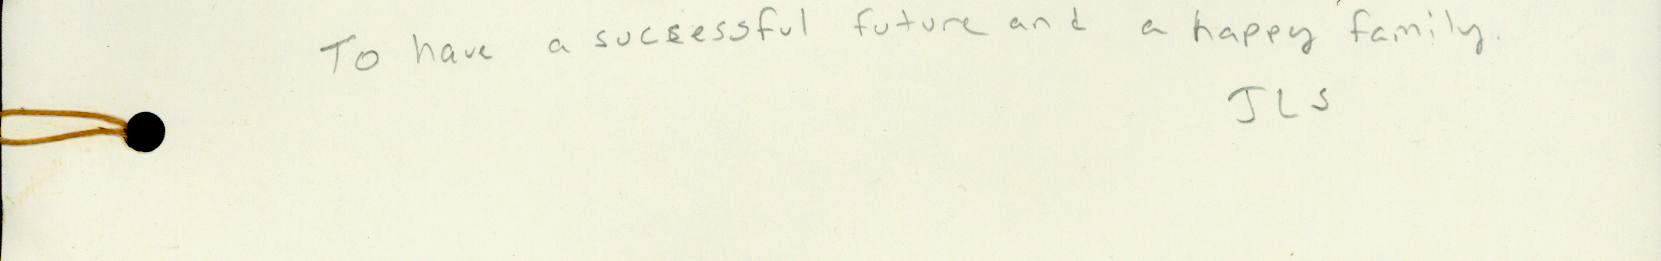 To have a successful future and a happy family.
JLS